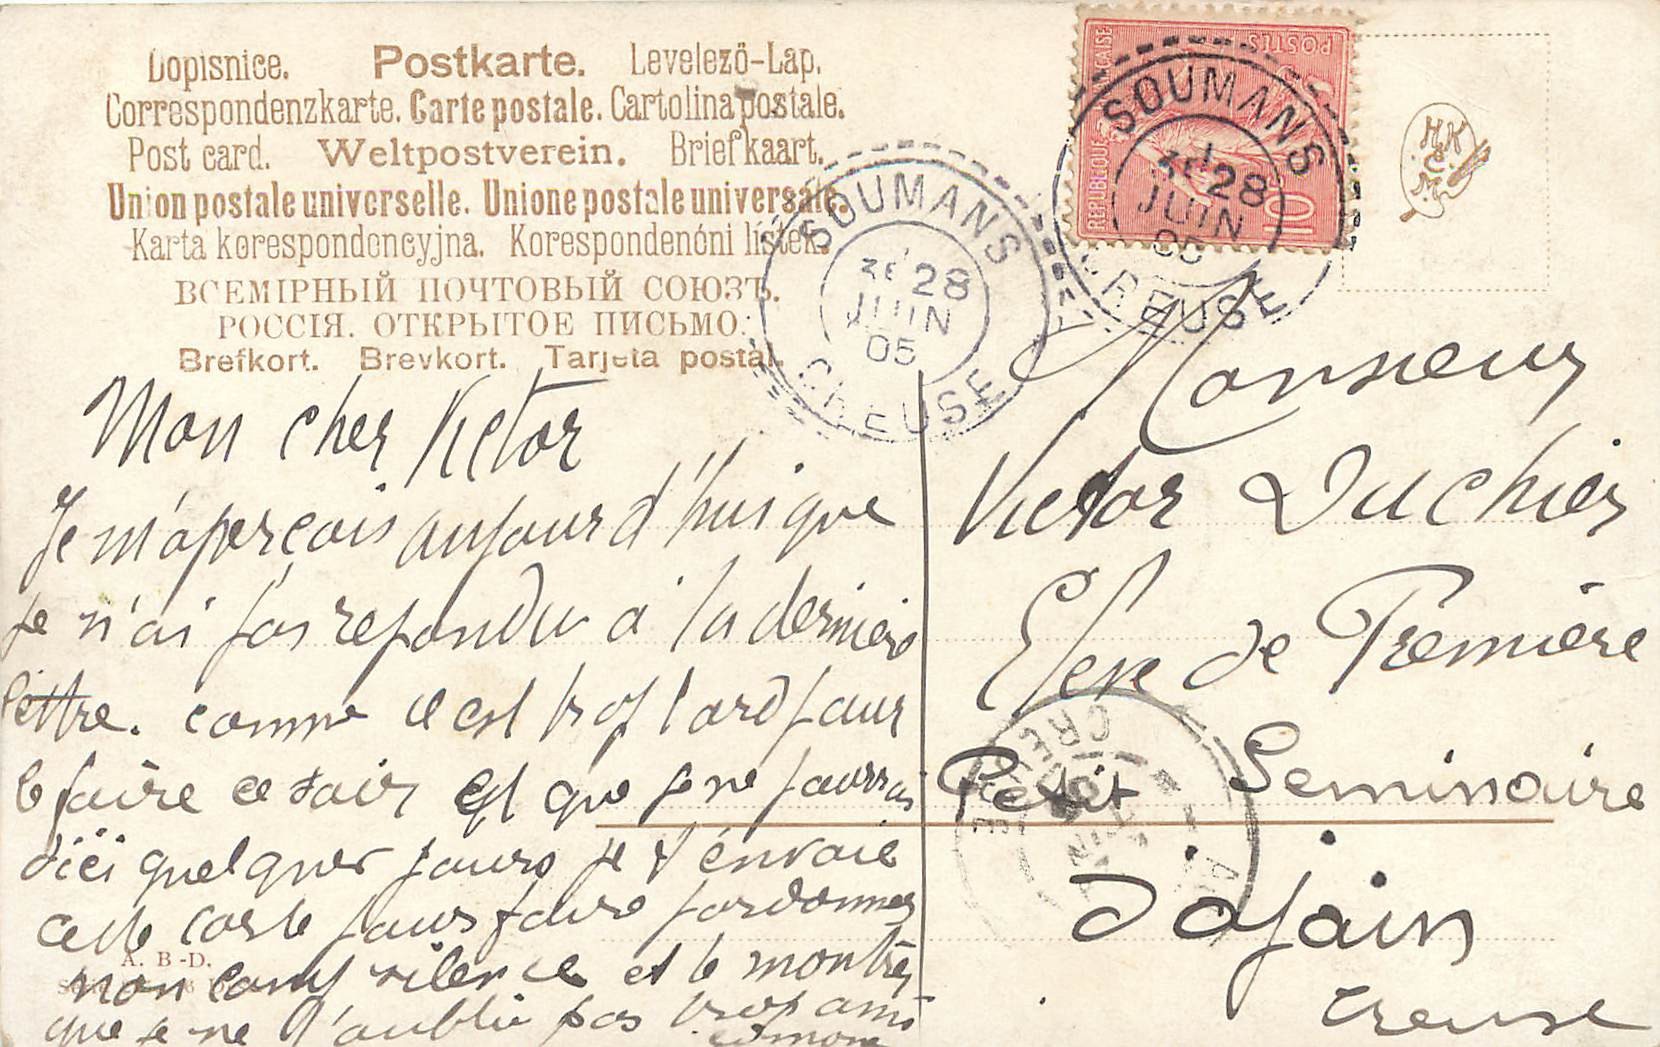 Dopisnice. Postkarte. Levelező-Lap.
Correspondenzkarte. Carte postale. Cartolina postale.
Post card. Weltpostverein. Briefkaart.
Union postale universelle. Unione postale universale.
Karta korespondencyjna. Korespondenční lístek.
ВСЕМІРНЫЙ ПОЧТОВЫЙ СОЮЗЪ.
РОССІЯ. ОТКРЫТОЕ ПИСЬМО.
Brefkort. Brevkort. Tarjeta postal.
POSTES
REPUBLIQUE FRANCAISE
10
SOUMANS
3E 28
JUIN
05
CREUSE
SOUMANS
3E 28
JUIN
05
CREUSE
HK
C
M
Mon cher Victor
Je m'aperçois aujourd'hui que
je n'ai pas repondu à la dernière
lettre. comme il est trop tard pour
le faire ce soir et que je ne pourrai
d'ici quelques jours je t'envoie
cette carte pour faire pardonner
mon long silence et te montrer
que je ne l'oublie pas ton ami
Edmond
A. B-D.
Monsieur
Victor Duchier
Eleve de Première
Petit Seminaire
d'ajain
Creuse
CREUSE
JUIN